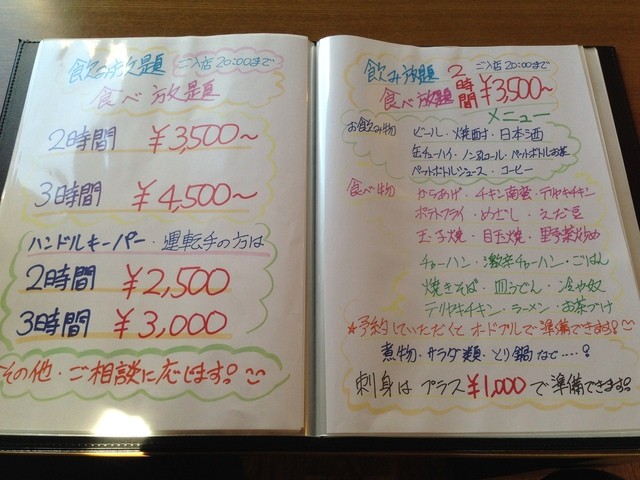 飲み放題 ご入店20:00まで
食べ放題
2時間 ¥3,500~
3時間 ¥4,500~
ハンドルキーパー・運転手の方は
2時間 ¥2,500
3時間 ¥3,000
その他・ご相談に応じます!
飲み放題 2時間 ご入店20:00まで
食べ放題 ¥3,500~
メニュー
お飲み物 ビール・焼酎・日本酒
缶チューハイ・ノンアルコール・ペットボトルお茶
ペットボトルジュース・コーヒー
食べ物 からあげ・チキン南蛮・テリヤキチキン
ポテトフライ・めざし・えだ豆
玉子焼・目玉焼・野菜炒め
チャーハン・激辛チャーハン・ごはん
焼きそば・皿うどん・冷や奴
テリヤキチキン・ラーメン・お茶づけ
*予約していただくとオードブルで準備できます!
煮物・サラダ類・とり鍋など…!
刺身はプラス¥1,000で準備できます!